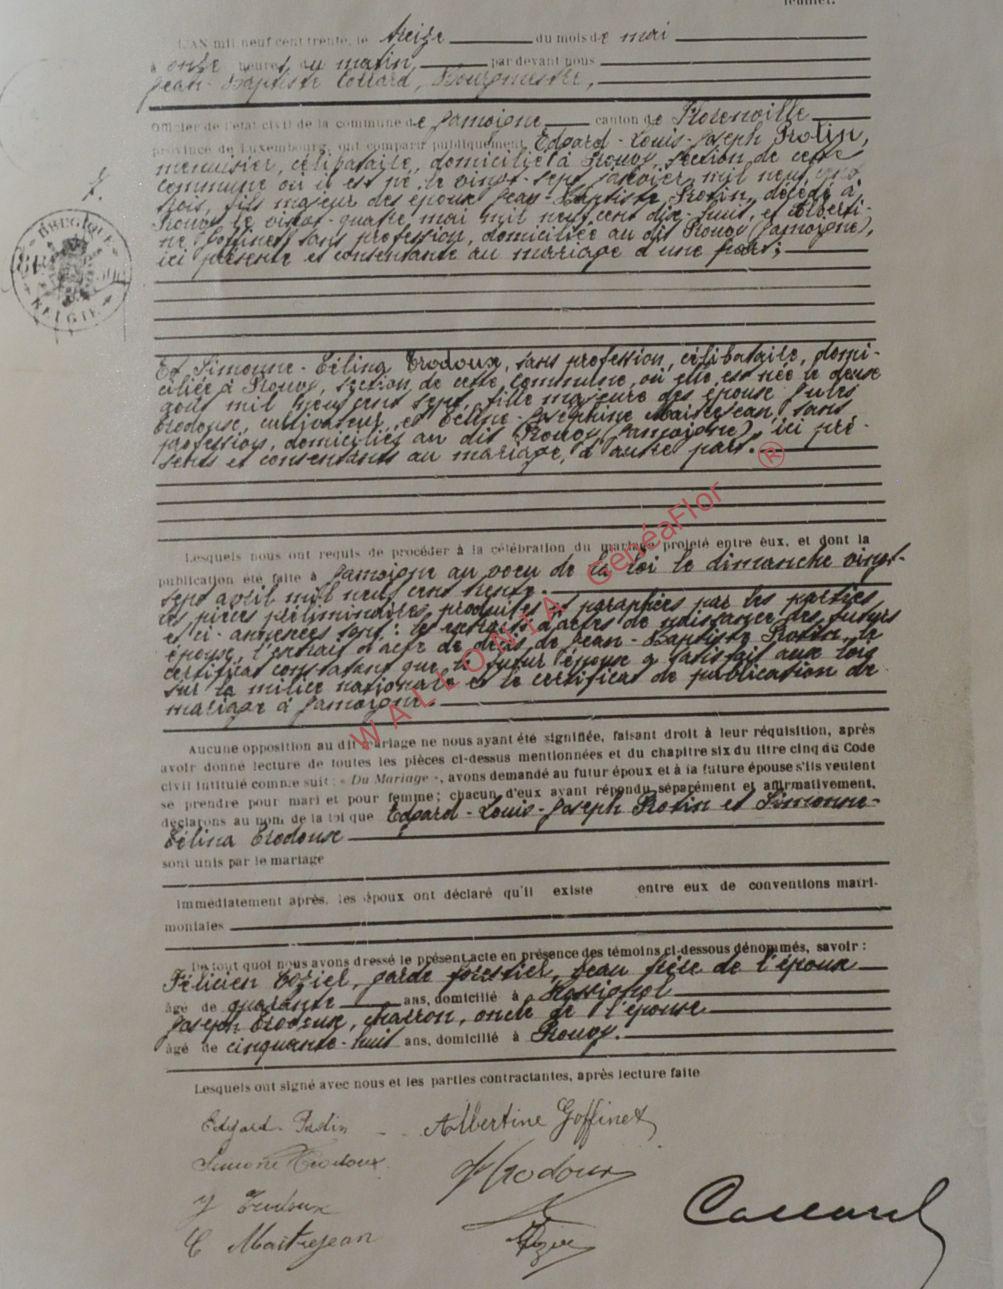 feuillet.
L'AN mil neuf cent trente, le treize du mois de mai
à onze heures du matin, par devant nous
Jean-Baptiste Collard, Bourgmestre,
Officier de l'état civil de la commune de Jamoigne canton de Florenville
province de Luxembourg, ont comparu publiquement Edgard-Louis-Joseph Rotin,
menuisier, célibataire, domicilié à Prouvy, section de cette
commune où il est né le vingt-sept janvier mil neuf cent
trois, fils majeur des époux Jean-Baptiste Rotin, décédé à
Prouvy le vingt-quatre mai mil neuf cent dix-huit, et Alberti-
ne Goffinet, sans profession, domiciliée au dit Prouvy (Jamoigne),
ici présente et consentante au mariage d'une part;
7.
BELGIQUE
BELGIE
Et Simonne-Célina Trodoux, sans profession, célibataire, domi-
ciliée à Prouvy, section de cette commune, où elle est née le douze
août mil neuf cent sept, fille majeure des époux Jules
Trodoux, cultivateur, et Céline-Joséphine Maitrejean, sans
profession, domiciliés au dit Prouvy (Jamoigne), ici pré-
sents et consentants au mariage, d'autre part.
Lesquels nous ont requis de procéder à la célébration du mariage projeté entre eux, et dont la
publication été faite à Jamoigne au voeu de la loi le dimanche vingt-
sept avril mil neuf cent trente.
Les pièces préliminaires produites et paraphées par les parties
et ci-annexées sont: les extraits d'actes de naissance des futurs
époux, l'extrait d'acte de décès de Jean-Baptiste Rotin, le
certificat constatant que le futur époux a satisfait aux lois
sur la milice nationale et le certificat de publication de
mariage à Jamoigne.
WALLONIA GenéaFlor ®
Aucune opposition au dit mariage ne nous ayant été signifiée, faisant droit à leur réquisition, après
avoir donné lecture de toutes les pièces ci-dessus mentionnées et du chapitre six du titre cinq du Code
civil intitulé comme suit : « Du Mariage », avons demandé au futur époux et à la future épouse s'ils veulent
se prendre pour mari et pour femme; chacun d'eux ayant répondu séparément et affirmativement,
déclarons au nom de la loi que Edgard-Louis-Joseph Rotin et Simonne-
Célina Trodoux
sont unis par le mariage
Immédiatement après, les époux ont déclaré qu'il existe entre eux de conventions matri-
moniales
De tout quoi nous avons dressé le présent acte en présence des témoins ci-dessous dénommés, savoir :
Félicien Rozier, garde forestier, beau frère de l'époux
âgé de quarante ans, domicilié à Rossignol
Joseph Trodoux, charron, oncle de l'épouse
âgé de cinquante-huit ans, domicilié à Prouvy.
Lesquels ont signé avec nous et les parties contractantes, après lecture faite
Edgard Rotin Albertine Goffinet
Simone Trodoux J Trodoux
J Trodoux
C Maitrejean
Collard